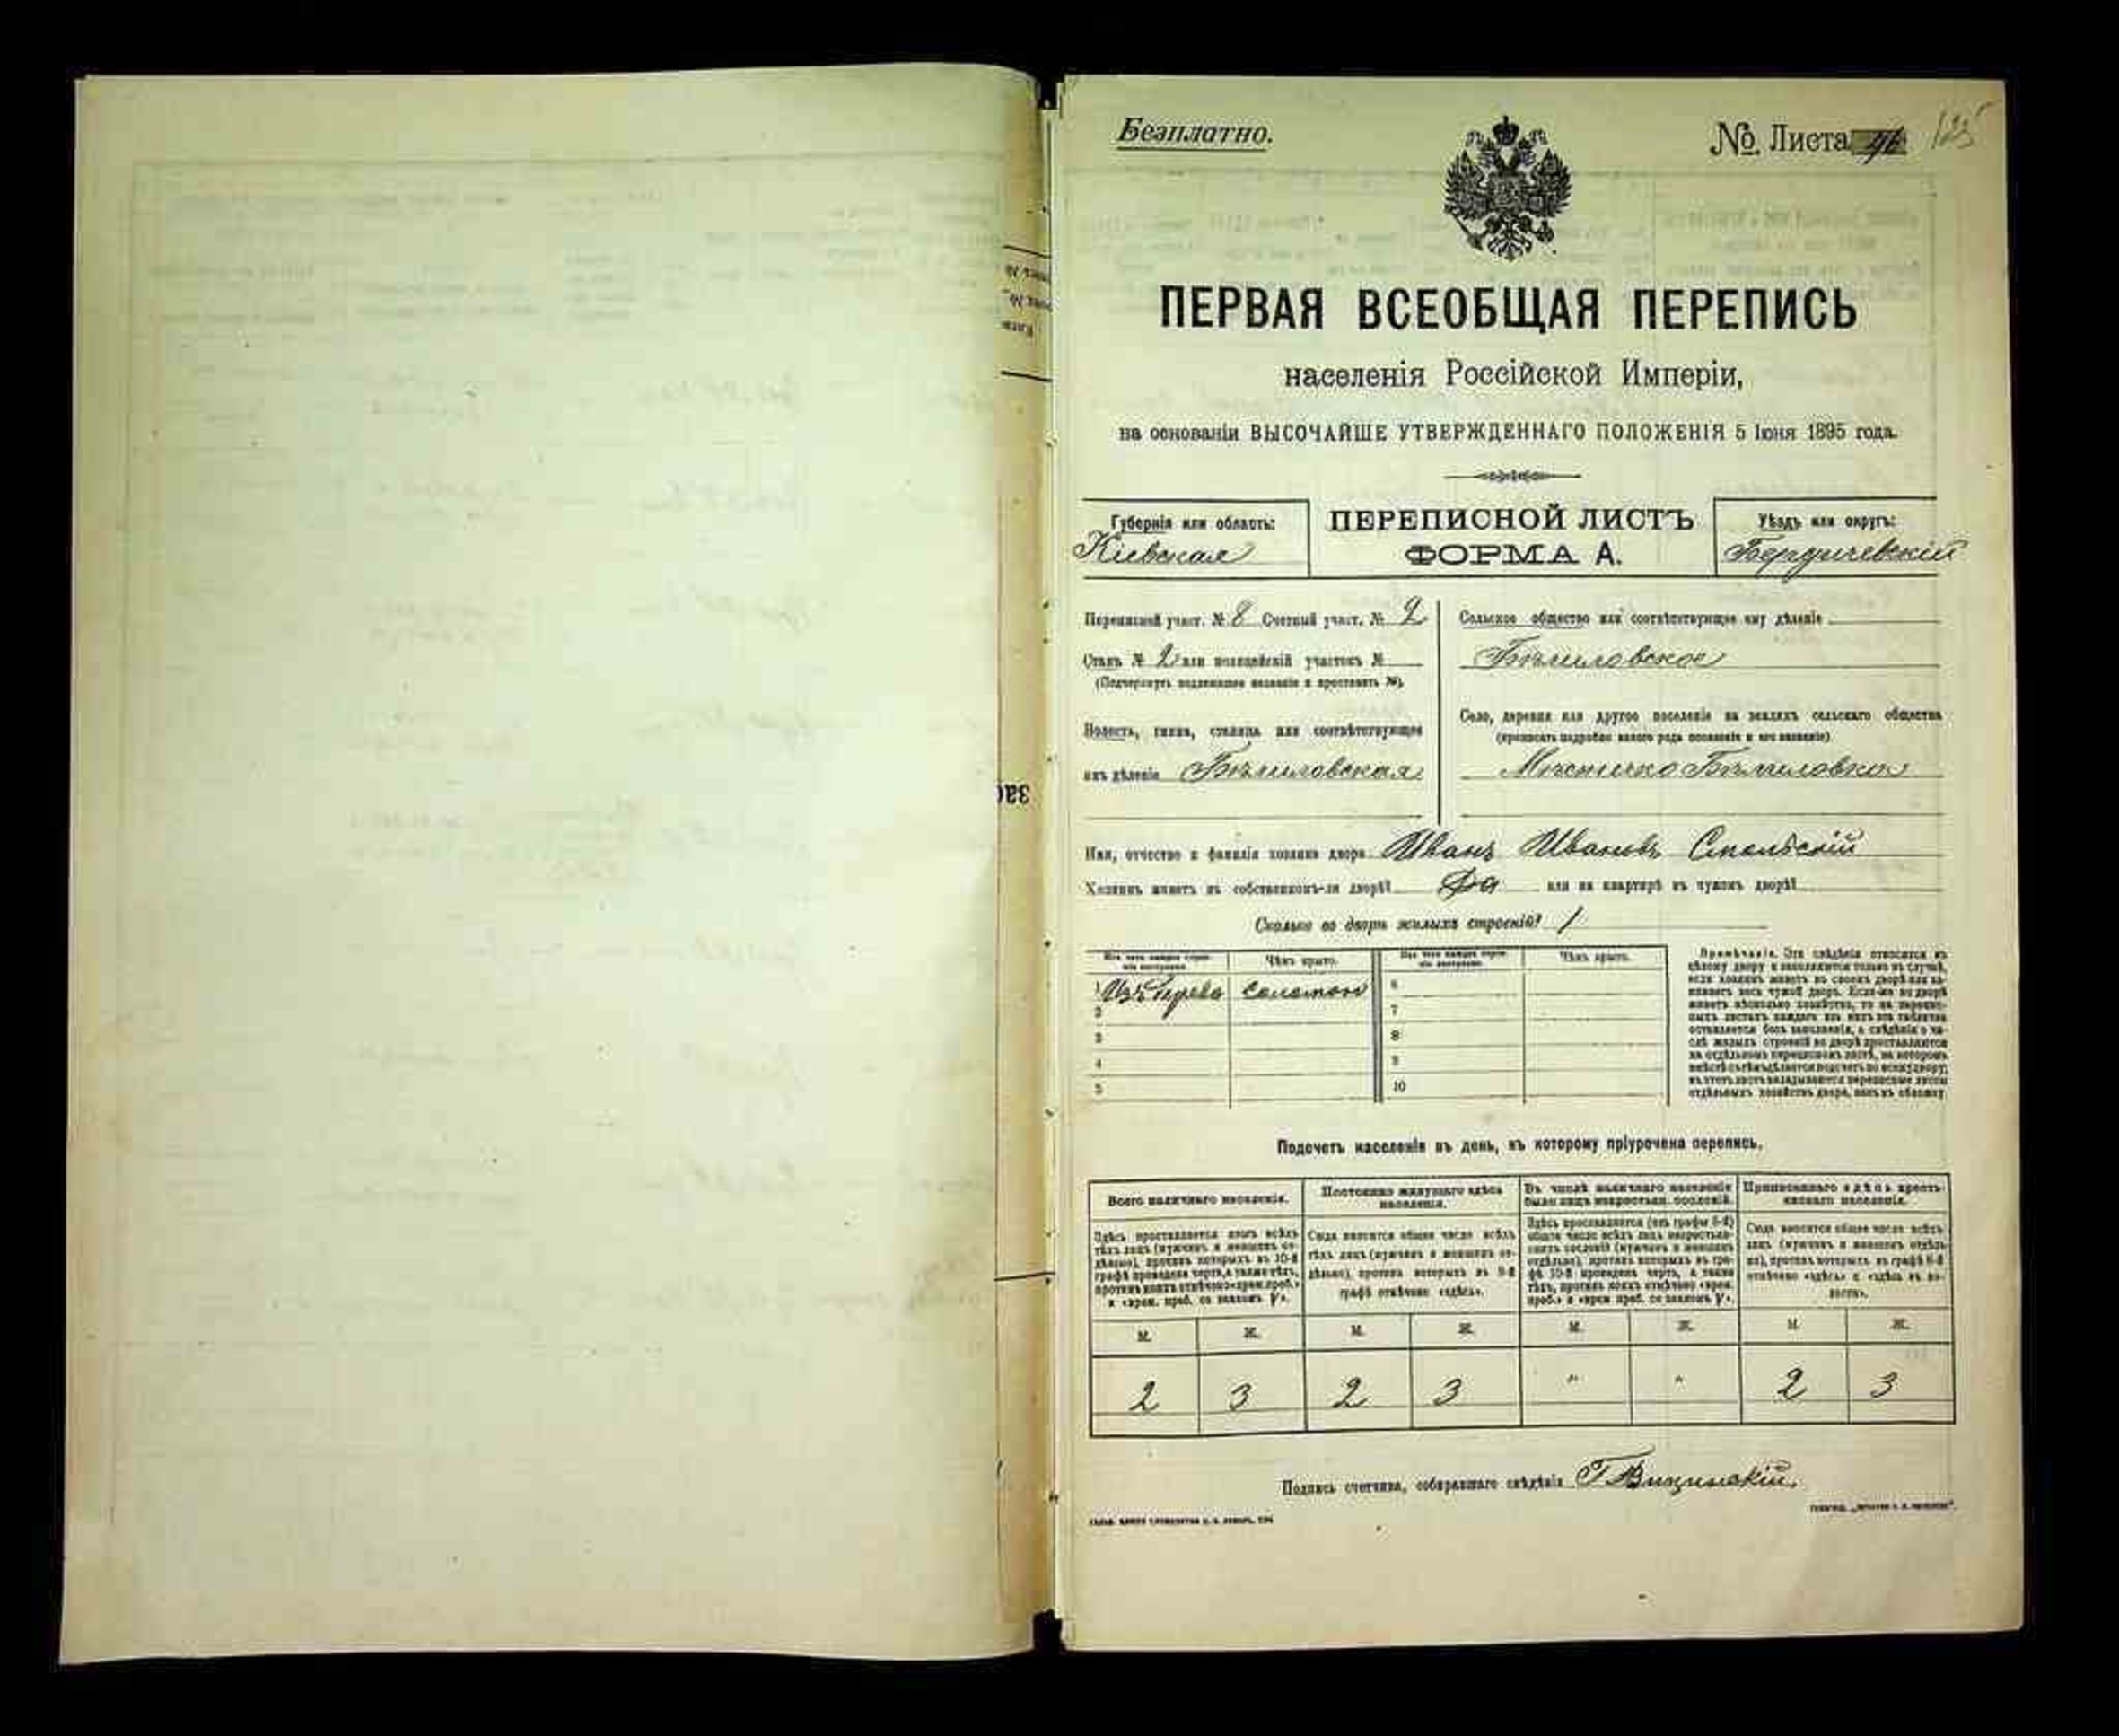 Безплатно.
№ Листа 46
125
ПЕРВАЯ ВСЕОБЩАЯ ПЕРЕПИСЬ
населенія Россійской Имперіи,
на основаніи ВЫСОЧАЙШЕ УТВЕРЖДЕННАГО ПОЛОЖЕНІЯ 5 Іюня 1895 года.
Губернія или область:
Кіевская
ПЕРЕПИСНОЙ ЛИСТЪ
ФОРМА А.
Уѣздъ или округъ:
Бердичевскій
Переписной участ. № 8 Счетный участ. № 2
Станъ № 2 или полицейскій участокъ №
(Подчеркнуть подлежащее названіе и проставить №).
Волость, гмина, станица или соотвѣтствующее
имъ дѣленіе Бѣлиловская
Сельское общество или соотвѣтствующее ему дѣленіе
Бѣлиловское
Село, деревня или другое поселеніе на земляхъ сельскаго общества
(прописать подробно какого рода поселеніе и его названіе)
Мѣстечко Бѣлиловка
Имя, отчество и фамилія хозяина двора Иванъ Ивановъ
Хозяинъ живетъ въ собственномъ-ли дворѣ? Да или на квартирѣ въ чужомъ дворѣ?
Сколько во дворѣ жилыхъ строеній? 1
Изъ чего каждое строеніе построено.
Чѣмъ крыто.
Изъ чего каждое строеніе построено.
Чѣмъ крыто.
1 Изъ дерева соломою
2
3
4
5
6
7
8
9
10
Примѣчаніе. Эти свѣдѣнія относятся къ
цѣлому двору и заполняются только въ случаѣ,
если хозяинъ живетъ въ своемъ дворѣ или за-
нимаетъ весь чужой дворъ. Если-же во дворѣ
живетъ нѣсколько хозяйствъ, то на перепис-
ныхъ листахъ каждаго изъ нихъ эта табличка
оставляется безъ заполненія, а свѣдѣнія о чи-
слѣ жилыхъ строеній во дворѣ проставляются
на отдѣльномъ переписномъ листѣ, на которомъ
вмѣстѣ съ тѣмъ дѣлается подсчетъ по всему двору;
въ этотъ листъ вкладываются переписные листы
отдѣльныхъ хозяйствъ двора, какъ въ обложку.
Подсчетъ населенія въ день, къ которому пріурочена перепись.
Всего наличнаго населенія.
Постоянно живущаго здѣсь населенія.
Въ числѣ наличнаго населенія было лицъ некрестьян. сословій.
Приписаннаго здѣсь крестьянскаго населенія.
Здѣсь проставляется число всѣхъ
тѣхъ лицъ (мужчинъ и женщинъ от-
дѣльно), противъ которыхъ въ 10-й
графѣ проведена черта, а также тѣхъ,
противъ коихъ отмѣчено «врем. преб.»
и «врем. преб. со знакомъ V».
Сюда вносится общее число всѣхъ
тѣхъ лицъ (мужчинъ и женщинъ от-
дѣльно), противъ которыхъ въ 9-й
графѣ отмѣчено «здѣсь».
Здѣсь проставляется (изъ графы 5-й)
общее число всѣхъ лицъ некрестьян-
скихъ сословій (мужчинъ и женщинъ
отдѣльно), противъ которыхъ въ гра-
фѣ 10-й проведена черта, а также
тѣхъ, противъ коихъ отмѣчено «врем.
преб.» и «врем. преб. со знакомъ V».
Сюда вносится общее число всѣхъ
лицъ (мужчинъ и женщинъ отдѣль-
но), противъ которыхъ въ графѣ 8-й
отмѣчено «здѣсь» и «здѣсь въ во-
лости».
М. Ж. М. Ж. М. Ж. М. Ж.
2 3 2 3 " " 2 3
Подпись счетчика, собиравшаго свѣдѣнія